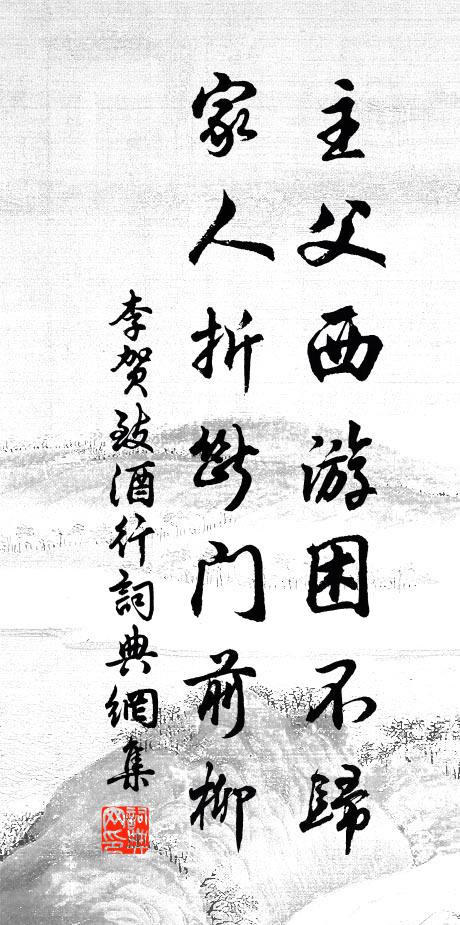 主父西游困不歸
家人折斷门前柳
李贺致酒行詞典網集